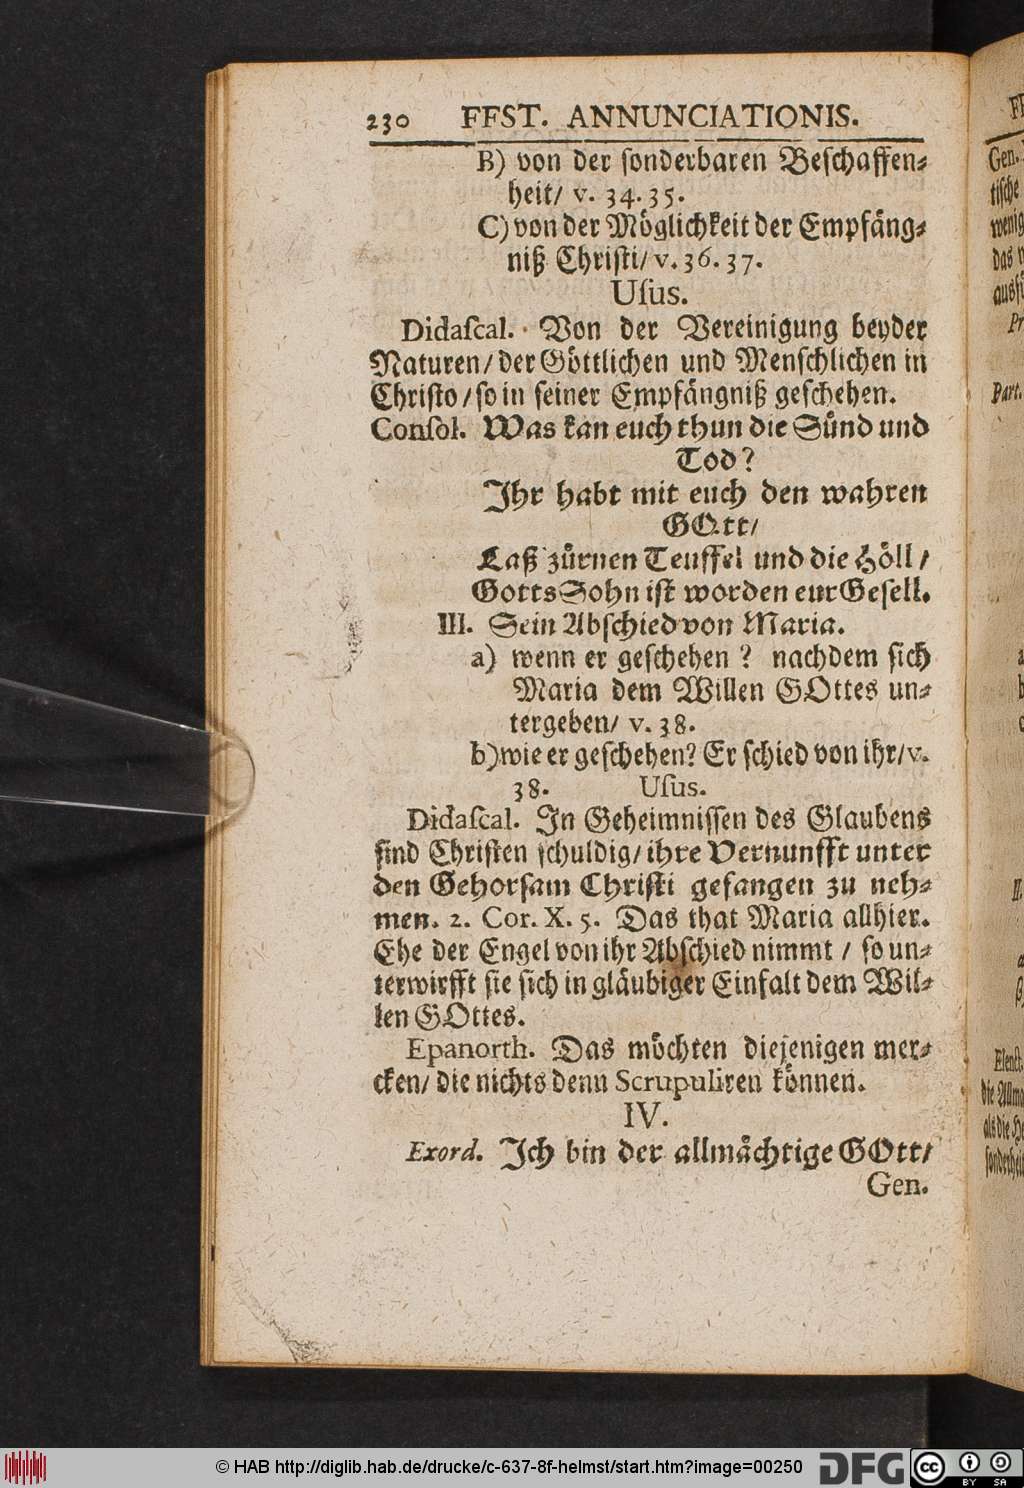 230 FFST. ANNUNCIATIONIS.
B) von der ſonderbaren Beſchaffen⸗
heit/ v. 34. 35.
C) von der Möglichkeit der Empfäng⸗
niß Chriſti/ v. 36. 37.
Uſus.
Didaſcal. Von der Vereinigung beyder
Naturen/ der Göttlichen und Menſchlichen in
Chriſto/ ſo in ſeiner Empfängniß geſchehen.
Conſol. Was kan euch thun die Sünd und
Tod?
Ihr habt mit euch den wahren
GOtt/
Laß zürnen Teuffel und die Höll/
Gotts Sohn iſt worden eur Geſell.
III. Sein Abſchied von Maria.
a) wenn er geſchehen? nachdem ſich
Maria dem Willen GOttes un⸗
tergeben/ v. 38.
b) wie er geſchehen? Er ſchied von ihr/ v.
38. Uſus.
Didaſcal. In Geheimniſſen des Glaubens
ſind Chriſten ſchuldig/ ihre Vernunfft unter
den Gehorſam Chriſti gefangen zu neh⸗
men. 2. Cor. X. 5. Das that Maria allhier.
Ehe der Engel von ihr Abſchied nimmt/ ſo un⸗
terwirfft ſie ſich in gläubiger Einfalt dem Wil⸗
len GOttes.
Epanorth. Das möchten diejenigen mer⸗
cken/ die nichts denn Scrupuliren können.
IV.
Exord. Ich bin der allmächtige GOtt/
Gen.
Gen.
tiſche
wenig
das
Part.
Elenct.
die
als die
© HAB http://diglib.hab.de/drucke/c-637-8f-helmst/start.htm?image=00250
DFG
cc BY SA